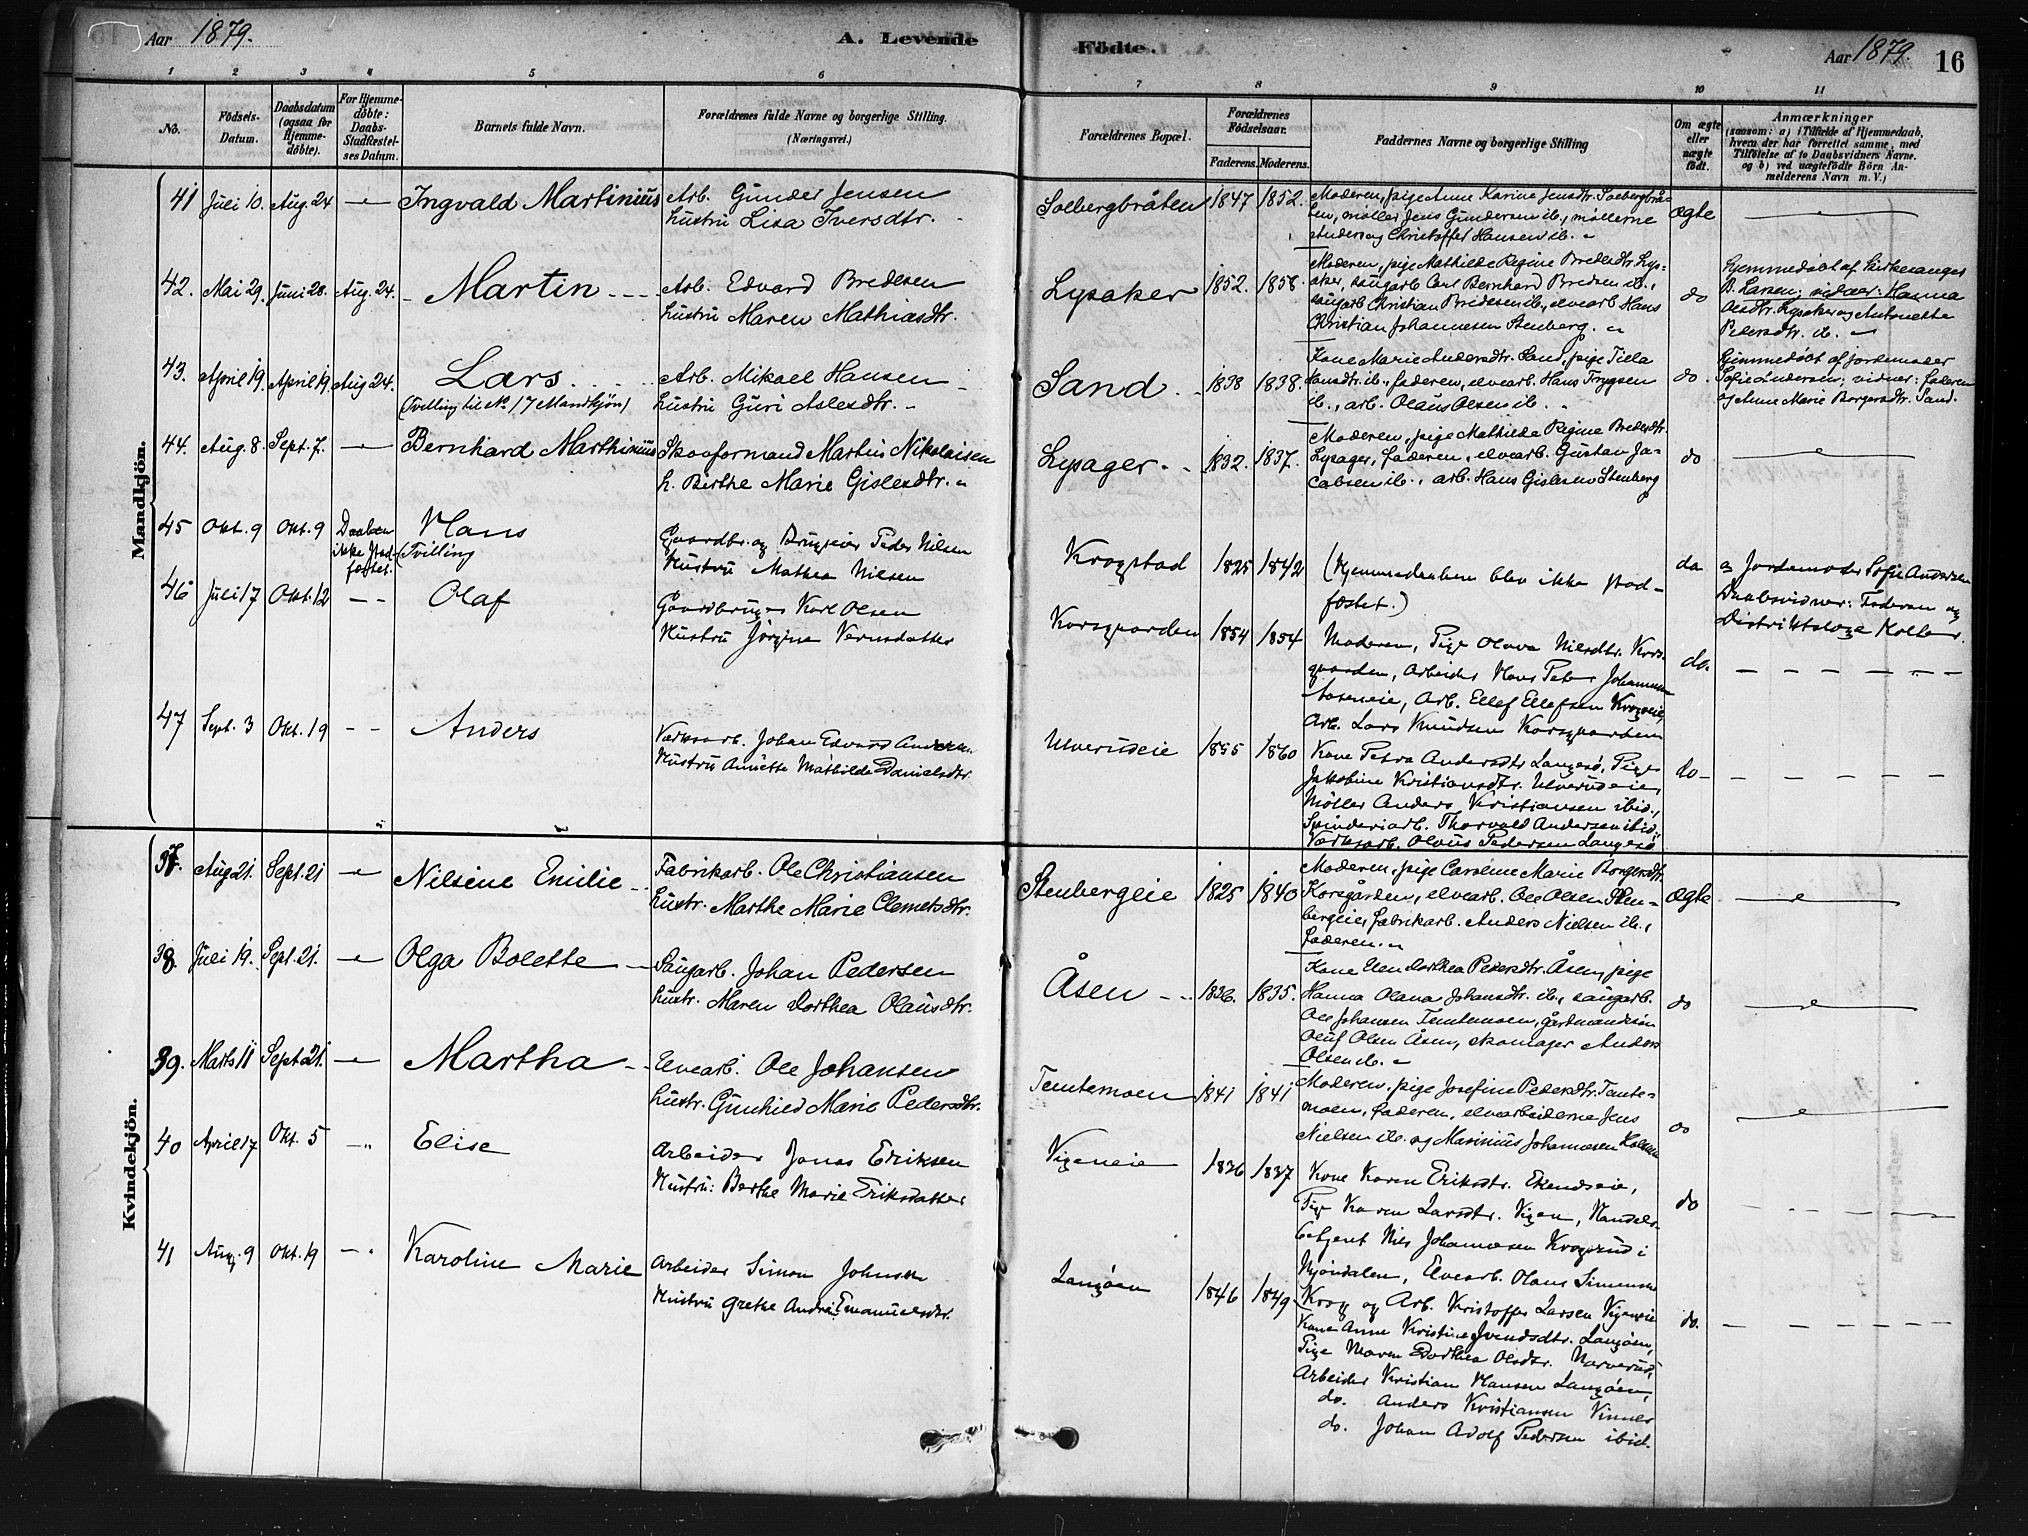 Aar 1879.
A. Levende
Födte.
Aar 1879.
16
1 2 3 4 5 6 7 8 9 10 11
No.
Födsels-
Datum.
Daabsdatum
(ogsaa for
Hjemme-
döbte).
For Hjemme-
döbte:
Daabs-
Stadfæstel-
ses Datum.
Barnets fulde Navn.
Forældrenes fulde Navne og borgerlige Stilling.
(Næringsvei.)
Forældrenes Bopæl.
Forældrenes
Födselsaar.
Faderens. Moderens.
Faddernes Navne og borgerlige Stilling
Om ægte
eller
uægte
födt.
Anmærkninger
(saasom: a) i Tilfælde af Hjemmedaab,
hvem der har forrettet samme, med
Tilföielse af to Daabsvidners Navne.
og b) ved uægtefödte Börn An-
melderens Navn m. V.)
Mandkjön.
41 Juli 10. Aug. 24 Ingvald Martinius Arb. Gunder Jensen
Hustru Lisa Iversdtr.
Solbergbråten 1847 1852.
Moderen, pige Anne Karine Jensdtr. Solbergbrå-
ten, møller Jens Gundersen ib., møllerne
Anders og Christoffer Hansen ib.
ægte
42. Mai 29. Juni 28. Aug. 24. Martin Arb. Edvard Bredesen
Hustru Maren Mathiasdtr.
Lysaker 1852. 1858.
Moderen, pige Mathilde Regine Bredesdtr. Lys-
aker, saugarb. Carl Bernhard Bredesen ib.,
saugarb. Christian Bredesen ib., elvearb. Hans
Christian Johannesen Stenberg.
do
Hjemmedøbt af Kirkesanger
B. Larsen; vidner: Hanna
Olsdtr. Lysaker og Antonette
Pedersdtr. ib.
43. April 19. April 19. Aug 24. Lars
(Tvilling til No. 17 Mandkjøn)
Arb. Mikael Hansen
Hustru Guri Aslesdtr.
Sand 1838 1838.
Kone Marie Andersdtr. Sand, pige Tilla
Hansdtr. ib., faderen, elvearb. Hans Trygsen
ib., arb. Olaus Olsen ib.
do.
Hjemmedøbt af Jordemoder
Sofie Andersen; vidner: faderen
og Anne Marie Borgersdtr. Sand.
44. Aug. 8. Sept. 7. Bernhard Marthinius Skovformand Martin Nikolaisen
H. Berthe Marie Gislesdtr.
Lysager 1832. 1837.
Moderen, pige Mathilde Regine Bredesdtr.
Lysager, faderen, elvearb. Gustav Ja-
cobsen ib., arb. Hans Gislesen Stenberg
do
45 Okt. 9 Okt. 9 Daaben
ikke stad-
fæstet.
Hans
(Tvilling
Gaardbr. og Brugseier Peder Nilsen
Hustru Mathea Nilsen
Krogstad 1825 1842
(Hjemmedaaben blev ikke stad-
fæstet.)
do
a Jordemoder Sofie Andersen
Daabsvidner: Faderen og
Distriktslæge Kolbe.
46 Juli 17 Okt. 12 Olaf
Gaardbruger Karl Olsen
Hustru Jørgine Vernsdatter
Korsgaarden 1854 1854
Moderen, Pige Olava Nilsdtr. Kors-
gaarden, Arbeider Hans Peter Johannesen
Aaseneie, Arb. Ellef Ellefsen Krogseie,
Arb. Lars Knudsen Korsgaarden
do.
47 Sept. 3 Okt. 19 Anders
Værksarb. Johan Edvard Andersen.
Hustru Annette Mathilde Danielsdtr.
Ulverudeie 1855 1860
Kone Petra Andersdtr. Langesø, Pige
Jakobine Kristiansdtr. Ulverudeie,
Møller Anders Kristiansen ibid.,
Spinderiarb. Thorvald Andersen ibid.,
Værksarb. Olaus Pedersen Langesø
do
Kvindekjön.
37. Aug 21. Sept. 21 Nilsine Emilie
Fabrikarb. Ole Christiansen
Hustr. Marthe Marie Clemetsdtr.
Stenbergeie 1825 1840
Moderen, pige Caroline Marie Borgersdtr.
Korsgården, elvearb. Ole Olsen Sten-
bergeie, fabrikarb. Anders Nielsen ib.,
faderen.
ægte
38. Juli 19. Sept. 21. Olga Bolette
Saugarb. Johan Pedersen
Hustr. Maren Dorthea Olausdtr.
Åsen 1836. 1835.
Kone Elen Dorthea Pedersdtr. Åsen, pige
Hanna Olava Johansdtr. ib., saugarb.
Ole Johansen Temtemoen, gårdmandssøn
Oluf Olsen Åsen, skomager Anders
Olsen ib.
do
39. Marts 11 Sept 21. Martha
Elvearb. Ole Johansen
Hustr. Gunhild Marie Pedersdtr.
Temtemoen 1841 1841
Moderen, pige Josefine Pedersdtr. Temte-
moen, faderen, elvearbeiderne Jens
Nielsen ib. og Marinius Johannesen
do
40 April 17 Okt. 5 Elise
Arbeider Jonas Eriksen
Hustru: Berthe Marie Eriksdatter
Vigeneie 1836 1837
Kone Karen Eriksdtr. Ekendseie,
Pige Karen Larsdtr. Vigen, Handels-
betjent Nils Johannesen Krogsrud i
Mjøndalen, Elvearb. Hans Simensen
Krog og Arb. Kristoffer Larsen Vigeneie
do
41 Aug. 9 Okt. 19 Karoline Marie
Arbeider Simon Johnsen
Hustru Grethe Andrea Emanuelsdtr.
Langøen 1846 1849
Kone Anne Kristine Svendsdtr. Langøen,
Pige Maren Dorthea Olsdtr. Narverud,
Arbeider Kristian Hansen Langøen,
do. Anders Kristiansen Vinnes
do. Johan Adolf Pedersen ibid.
do.